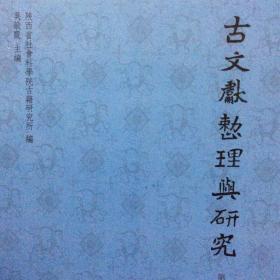 古文獻整理與研究
第
陝西省社會科學院古籍研究所 編
吳敏霞 主編